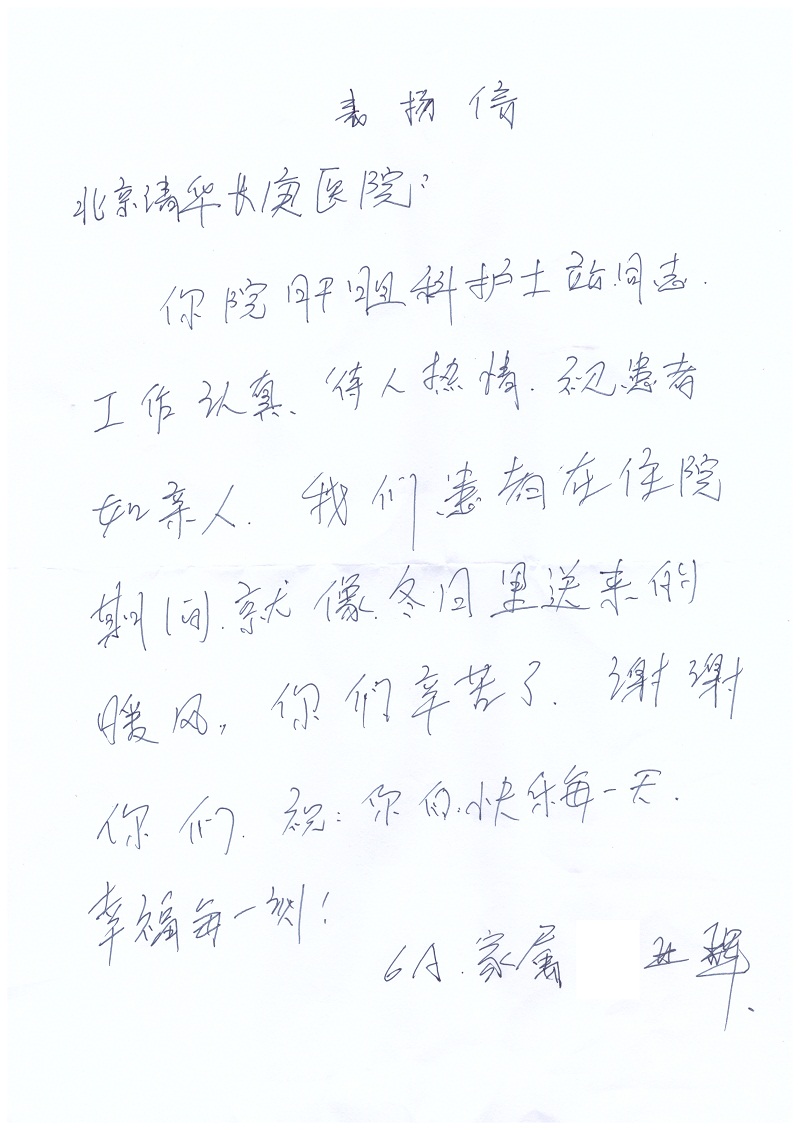 表扬信
北京清华长庚医院:
你院肝胆科护士站同志.
工作认真、待人热情.视患者
如亲人.我们患者在住院
期间.就像冬日里送来的
暖风,你们辛苦了.谢谢
你们.祝:你们快乐每一天.
幸福每一刻!
6A.家属